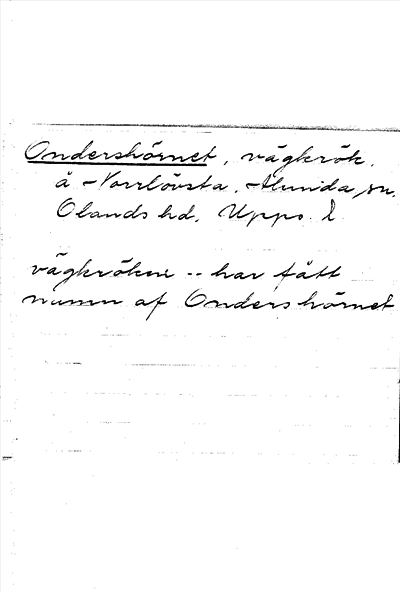 Ondershörnet, vägkrök,
å Norrlövsta, Alunda sn.
Olands hd, Upps. l.
vägkröken -- har fått
namn af Ondershörnet